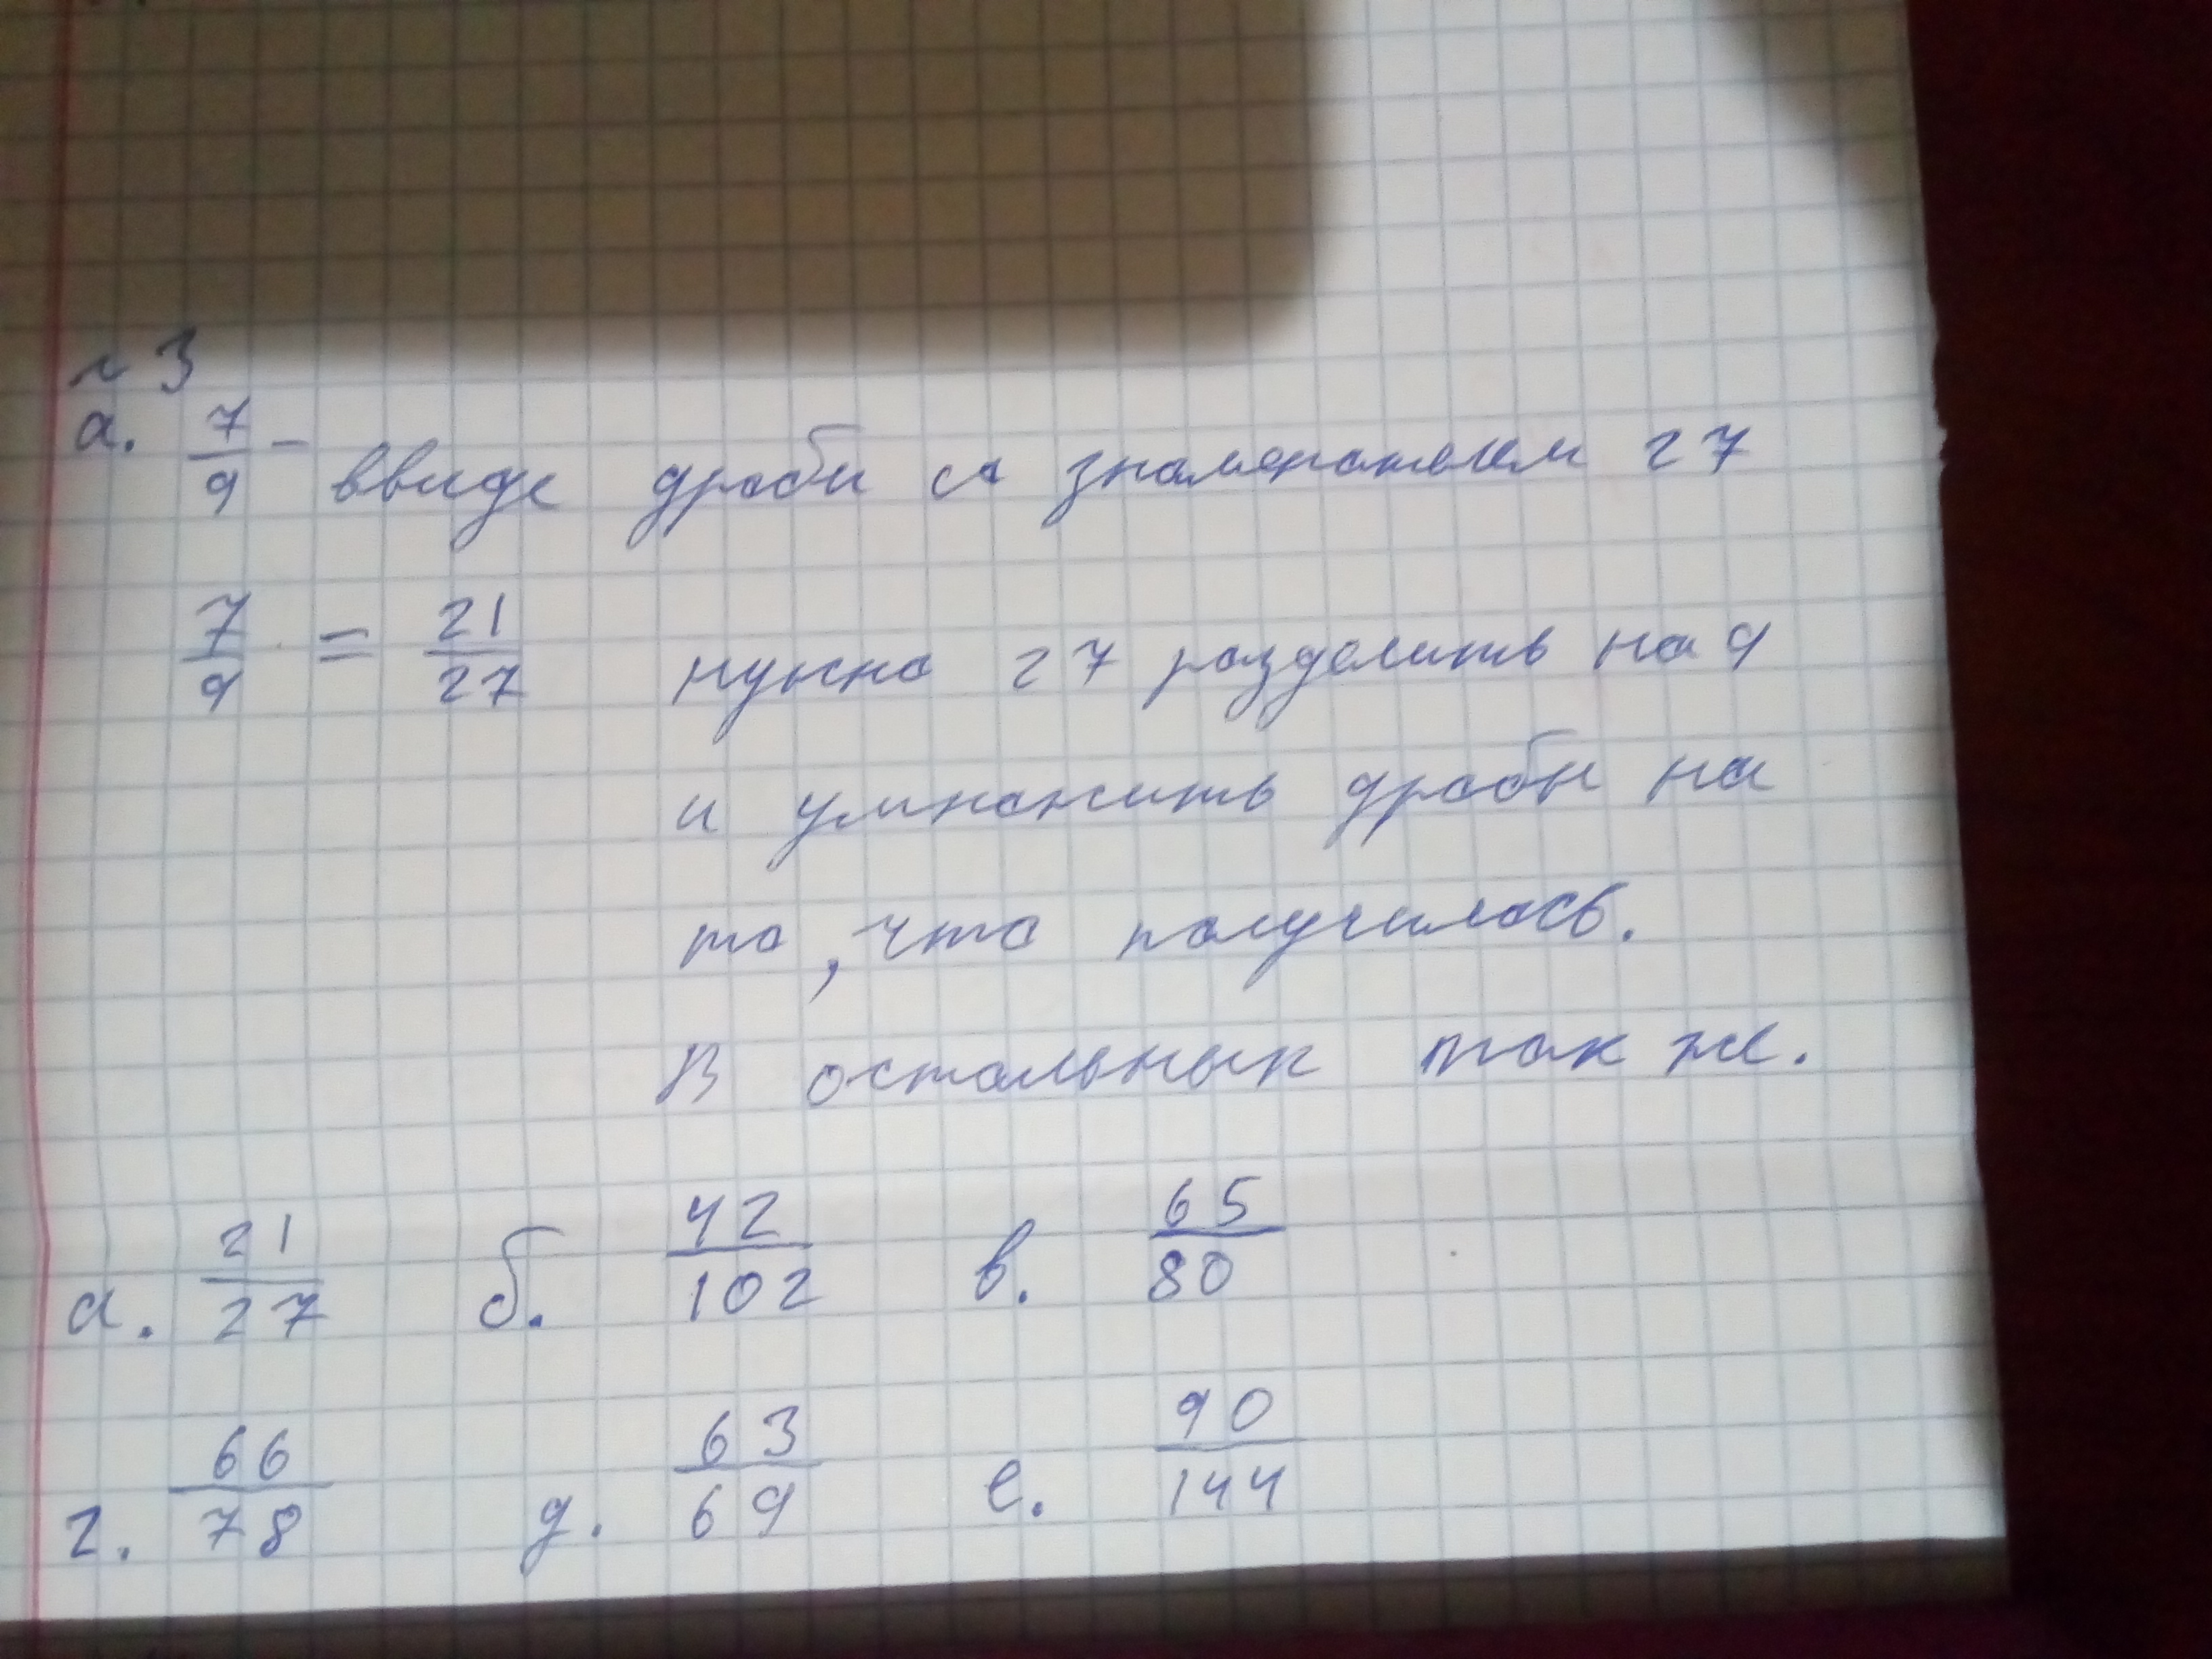 №3
а. 7/9 - ввиде дроби со знаменателем 27
7/9 = 21/27 нужно 27 разделить на 9
и умножить дробь на
то, что получилось.
В остальных так же.
а. 21/27 б. 42/102 в. 65/80
г. 66/78 д. 63/69 е. 90/144